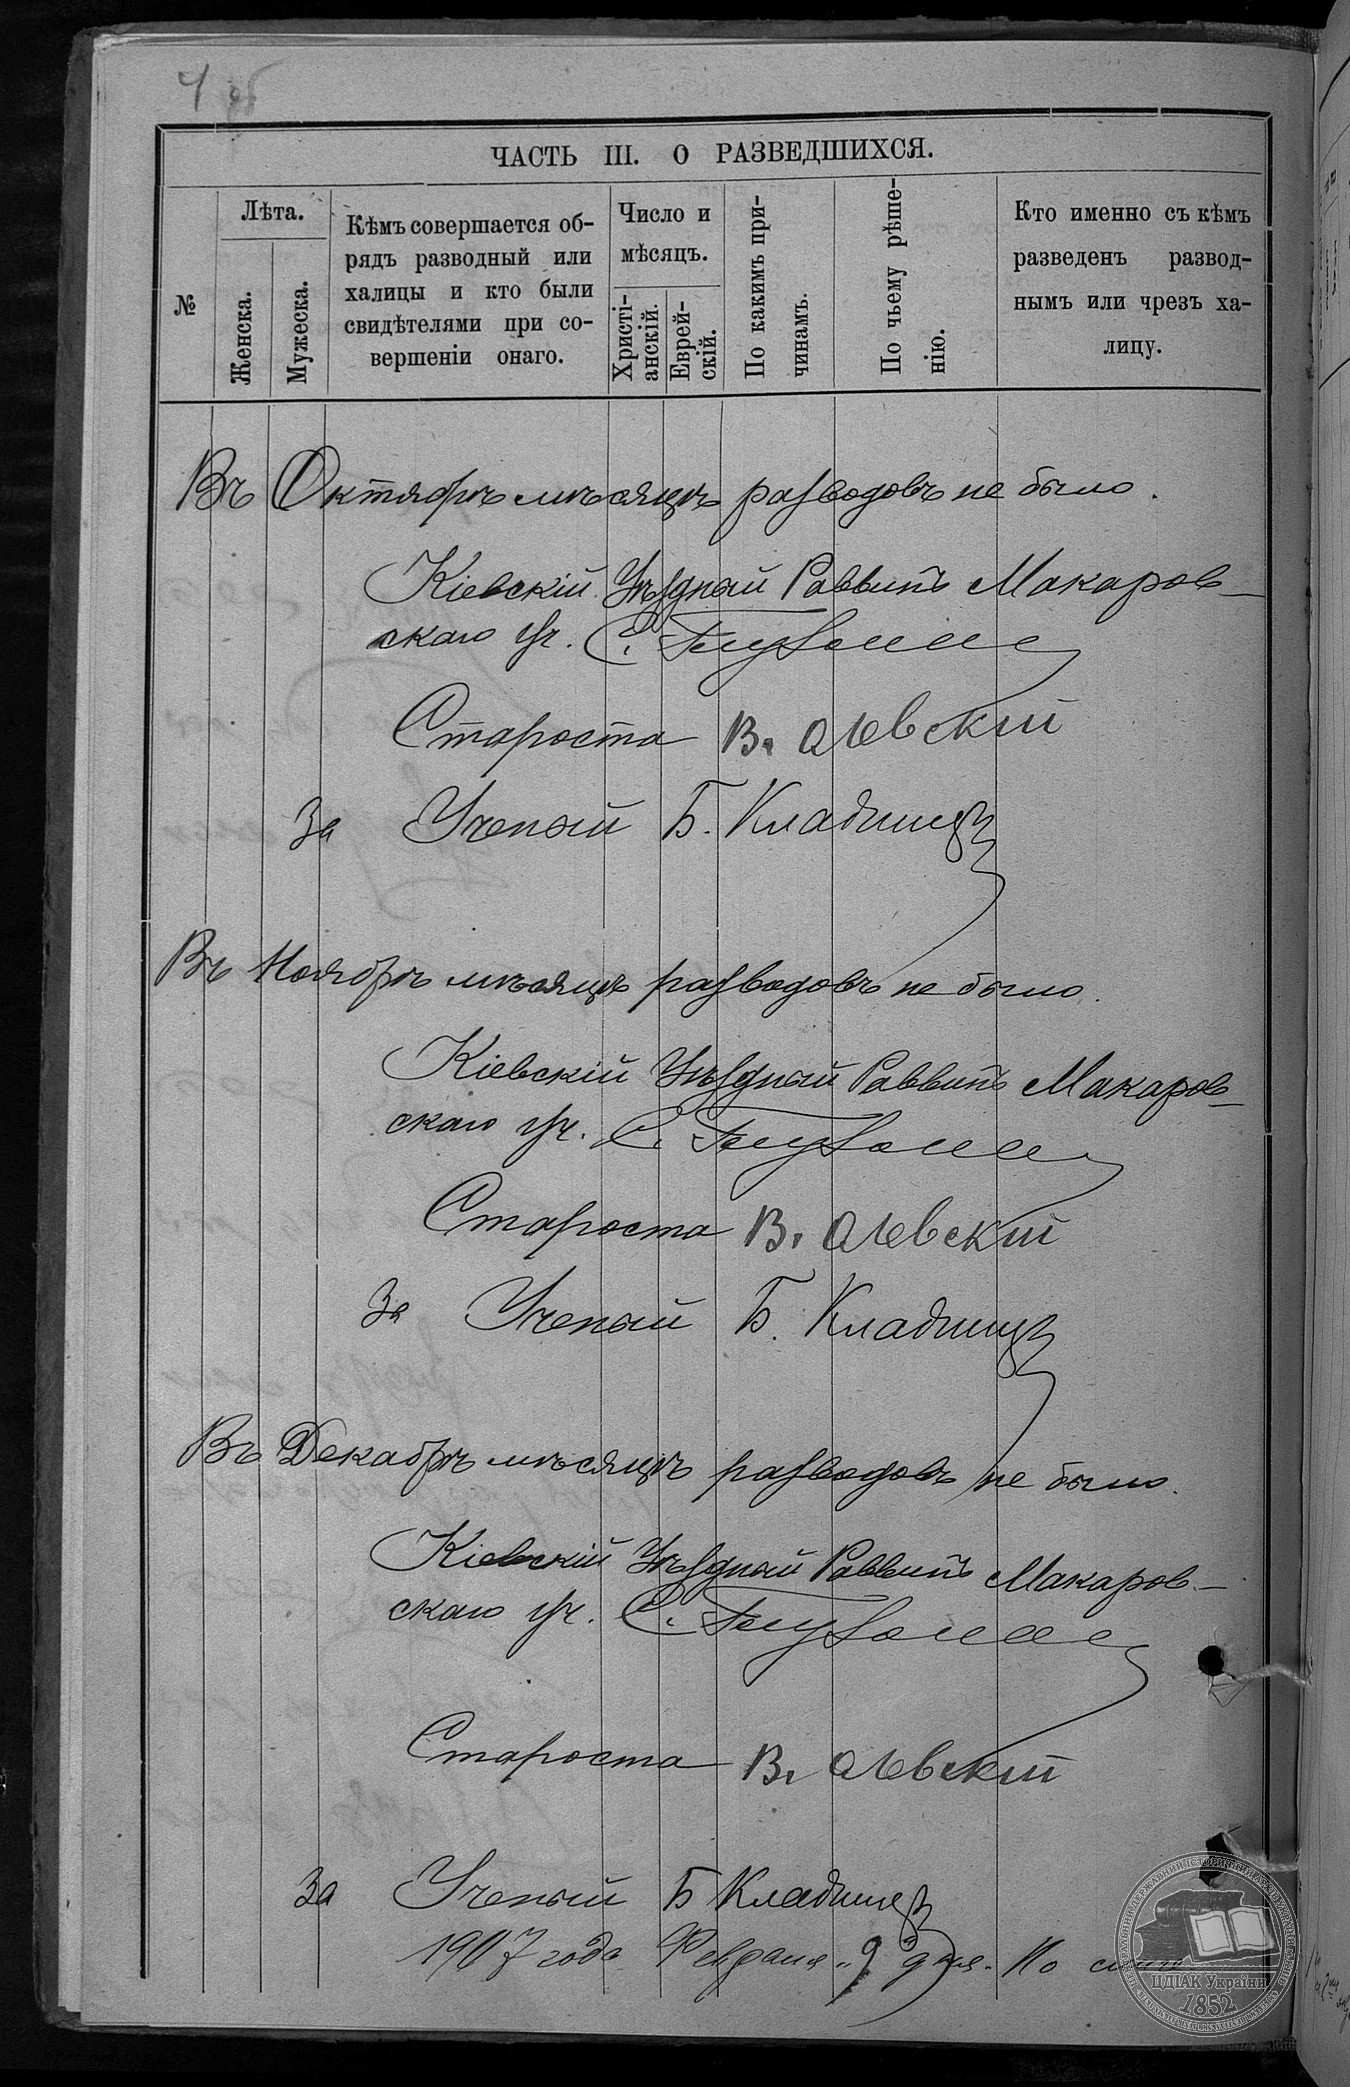 4 об
ЧАСТЬ III. О РАЗВЕДШИХСЯ.
№
Лѣта.
Женска.
Мужеска.
Кѣмъ совершается об-
рядъ разводный или
халицы и кто были
свидѣтелями при со-
вершеніи онаго.
Число и
мѣсяцъ.
Христі-
анскій.
Еврей-
скій.
По какимъ при-
чинамъ.
По чьему рѣше-
нію.
Кто именно съ кѣмъ
разведенъ развод-
нымъ или чрезъ ха-
лицу.
Въ Октябрѣ мѣсяцѣ разводовъ не было.
Кіевскій Уѣздный Раввинъ Макаров-
скаго уч. С.
Староста В. Олевскій
За Ученый Б. Кладницкій
Въ Ноябрѣ мѣсяцѣ разводовъ не было.
Кіевскій Уѣздный Раввинъ Макаров-
скаго уч. С.
Староста В. Олевскій
За Ученый Б. Кладницкій
Въ Декабрѣ мѣсяцѣ разводовъ не было.
Кіевскій Уѣздный Раввинъ Макаров-
скаго уч. С.
Староста В. Олевскій
За Ученый Б Кладницкій
1907 года Февраля "9" дня. По
ЦДІАК України
1852